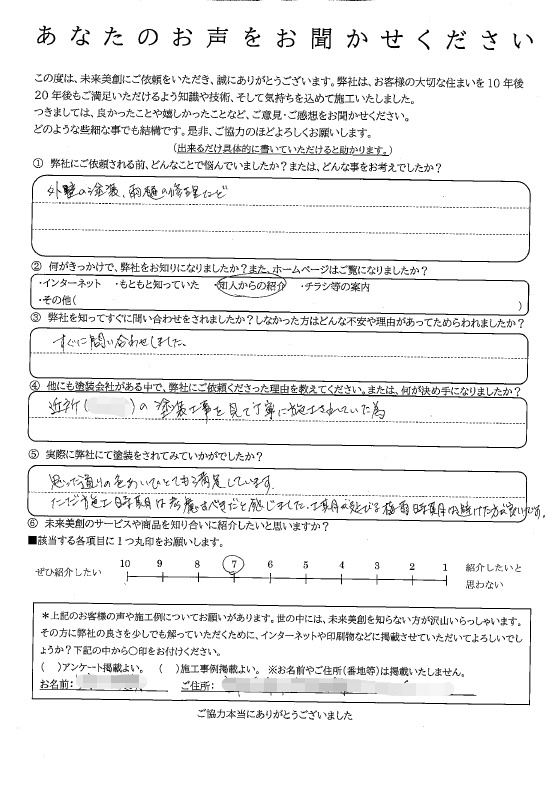 あなたのお声をお聞かせください
この度は、未来美創にご依頼をいただき、誠にありがとうございます。弊社は、お客様の大切な住まいを10年後
20年後もご満足いただけるよう知識や技術、そして気持ちを込めて施工いたしました。
つきましては、良かったことや嬉しかったことなど、ご意見・ご感想をお聞かせください。
どのような些細な事でも結構です。是非、ご協力のほどよろしくお願いします。
(出来るだけ具体的に書いていただけると助かります。)
① 弊社にご依頼される前、どんなことで悩んでいましたか?または、どんな事をお考えでしたか?
外壁の塗装、雨樋の修理など
② 何がきっかけで、弊社をお知りになりましたか?また、ホームページはご覧になりましたか?
・インターネット ・もともと知っていた ・知人からの紹介 ・チラシ等の案内
・その他( )
③ 弊社を知ってすぐに問い合わせをされましたか?しなかった方はどんな不安や理由があってためらわれましたか?
すぐに問い合わせしました。
④ 他にも塗装会社がある中で、弊社にご依頼くださった理由を教えてください。または、何が決め手になりましたか?
近所( )の塗装工事を見て丁寧に施工されていた為
⑤ 実際に弊社にて塗装をされてみていかがでしたか?
思った通りの色あいでとても満足しています。
ただ施工時期は考慮すべきだと感じました。工期が延びる梅雨時期は避けた方が良いです。
⑥ 未来美創のサービスや商品を知り合いに紹介したいと思いますか?
■該当する各項目に1つ丸印をお願いします。
ぜひ紹介したい 10 9 8 7 6 5 4 3 2 1 紹介したいと
思わない
*上記のお客様の声や施工例についてお願いがあります。世の中には、未来美創を知らない方が沢山いらっしゃいます。
その方に弊社の良さを少しでも解っていただくために、インターネットや印刷物などに掲載させていただいてよろしいでし
ょうか?下記の中から○印をお付けください。
( )アンケート掲載よい。 ( )施工事例掲載よい。 ※お名前やご住所(番地等)は掲載いたしません。
お名前: ご住所:
ご協力本当にありがとうございました